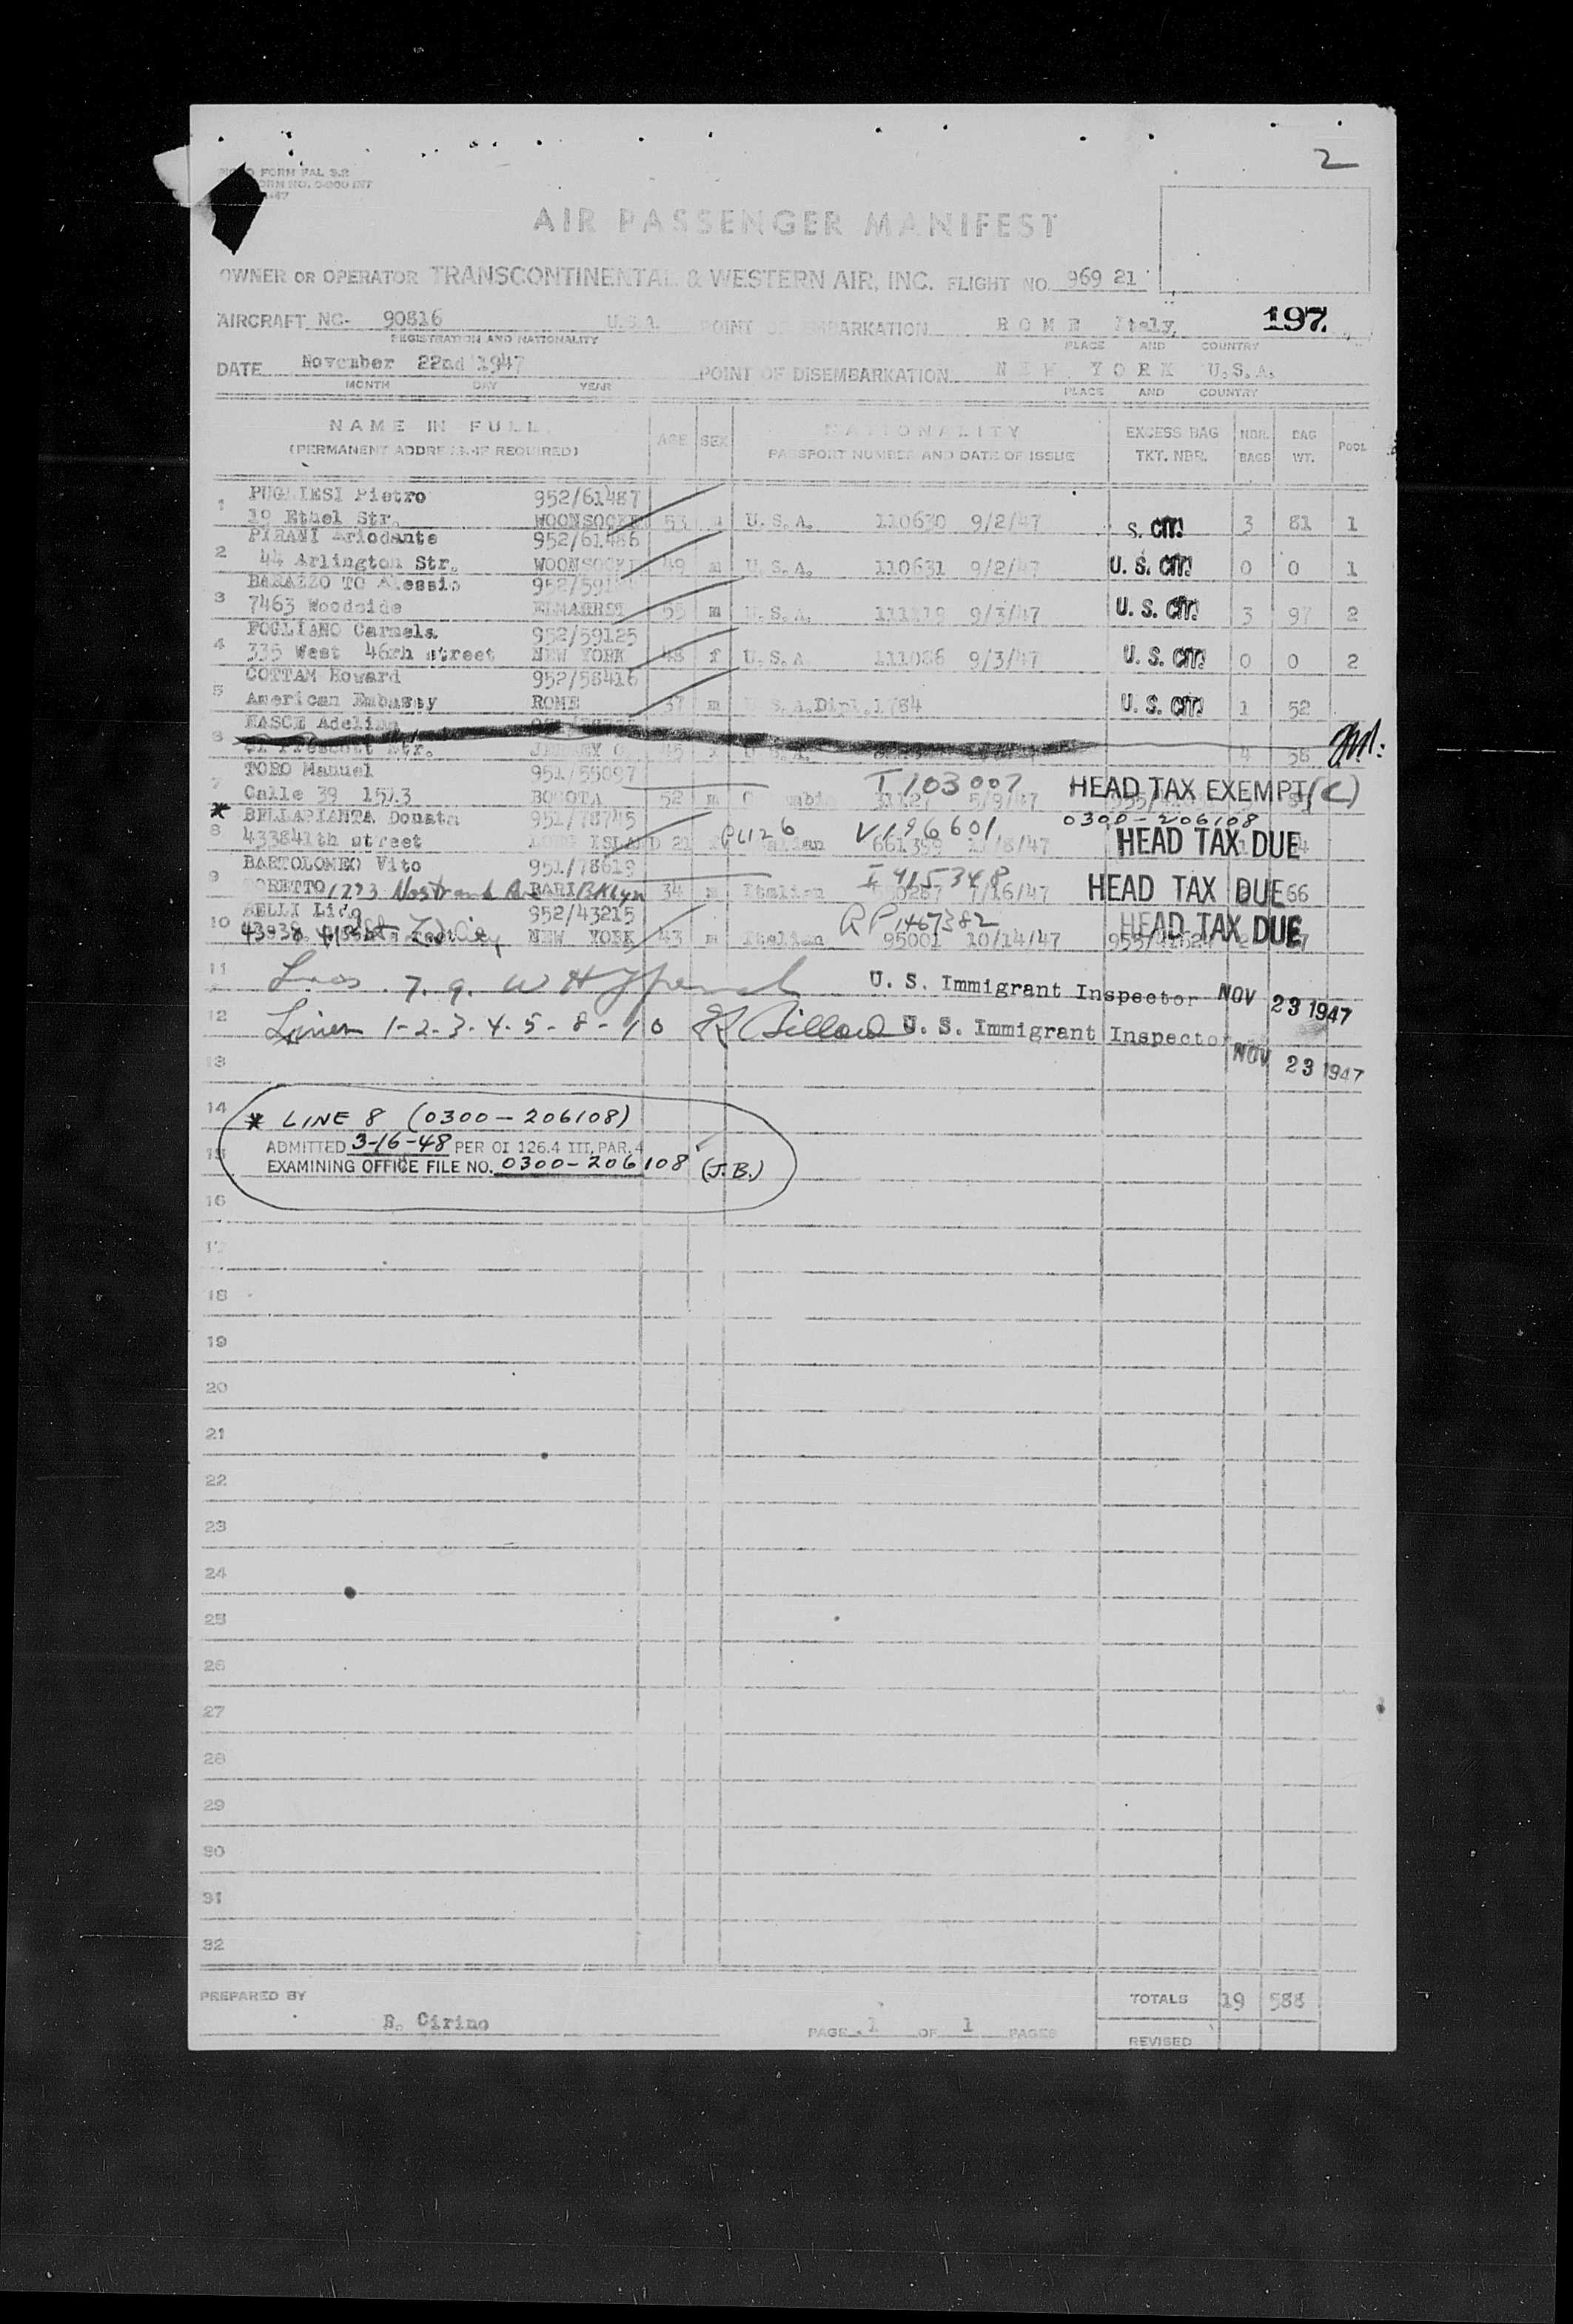 2
FORM PAL 3.2
AIR PASSENGER MANIFEST
OWNER OR OPERATOR TRANSCONTINENTAL & WESTERN AIR, INC. FLIGHT NO. 969 21
AIRCRAFT NC- 90816 U.S.A. POINT OF EMBARKATION ROME Italy 197.
REGISTRATION AND NATIONALITY PLACE AND COUNTRY
DATE November 22nd 1947 POINT OF DISEMBARKATION NEW YORK U.S.A.
MONTH DAY YEAR PLACE AND COUNTRY
NAME IN FULL AGE SEX NATIONALITY EXCESS BAG NBR. BAG POOL
(PERMANENT ADDRESS-IF REQUIRED) PASSPORT NUMBER AND DATE OF ISSUE TKT. NBR. BAGS WT.
PUGLIESI Pietro 952/61487
1 19 Ethel Str. 53 m U.S.A. 110630 9/2/47 S. CIT. 3 81 1
PIRANI Ariodante 952/61486
2 44 Arlington Str. 49 m U.S.A. 110631 9/2/47 U. S. CIT. 0 0 1
BARAZZO TO Alessio
3 7463 Woodside 55 m U.S.A. 9/3/47 U. S. CIT. 3 97 2
FOGLIANO Carmela 952/59125
4 335 West 46rh street NEW YORK 48 f U.S.A. 111086 9/3/47 U. S. CIT. 0 0 2
COTTAM Howard 952/58416
5 American Embassy ROME 37 m U.S.A.Dipl.1784 U. S. CIT. 1 52
NASCE Adelina
6 Prescott Str. 45 4 58
TORO Manuel 951/55097 T 103007 HEAD TAX EXEMPT (C)
7 Calle 39 1513 BOGOTA 52 m 5/9/47
* BELLAPIANTA Donata 951/78745 V196601 0300-206108
8 43384lth street LONG ISLAND 21 HEAD TAX DUE
BARTOLOMEO Vito 951/78619 I 415348
9 1773 Nostrand Ave BARI BKlyn 34 m Italian 7/16/47 HEAD TAX DUE 66
952/43215 RP1467382 HEAD TAX DUE
10 NEW YORK 43 m Italian 95001 10/14/47
11 7. 9. U. S. Immigrant Inspector NOV 23 1947
12 Lines 1-2-3-4-5-8-10 U. S. Immigrant Inspector NOV 23 1947
13
14 * LINE 8 (0300-206108)
15 ADMITTED 3-16-48 PER OI 126.4 III, PAR. 4
EXAMINING OFFICE FILE NO. 0300-206108 (J.B.)
16
17
18
19
20
21
22
23
24
25
26
27
28
29
30
31
32
PREPARED BY TOTALS 19 588
E. Cirino PAGE 1 OF 1 PAGES
REVISED